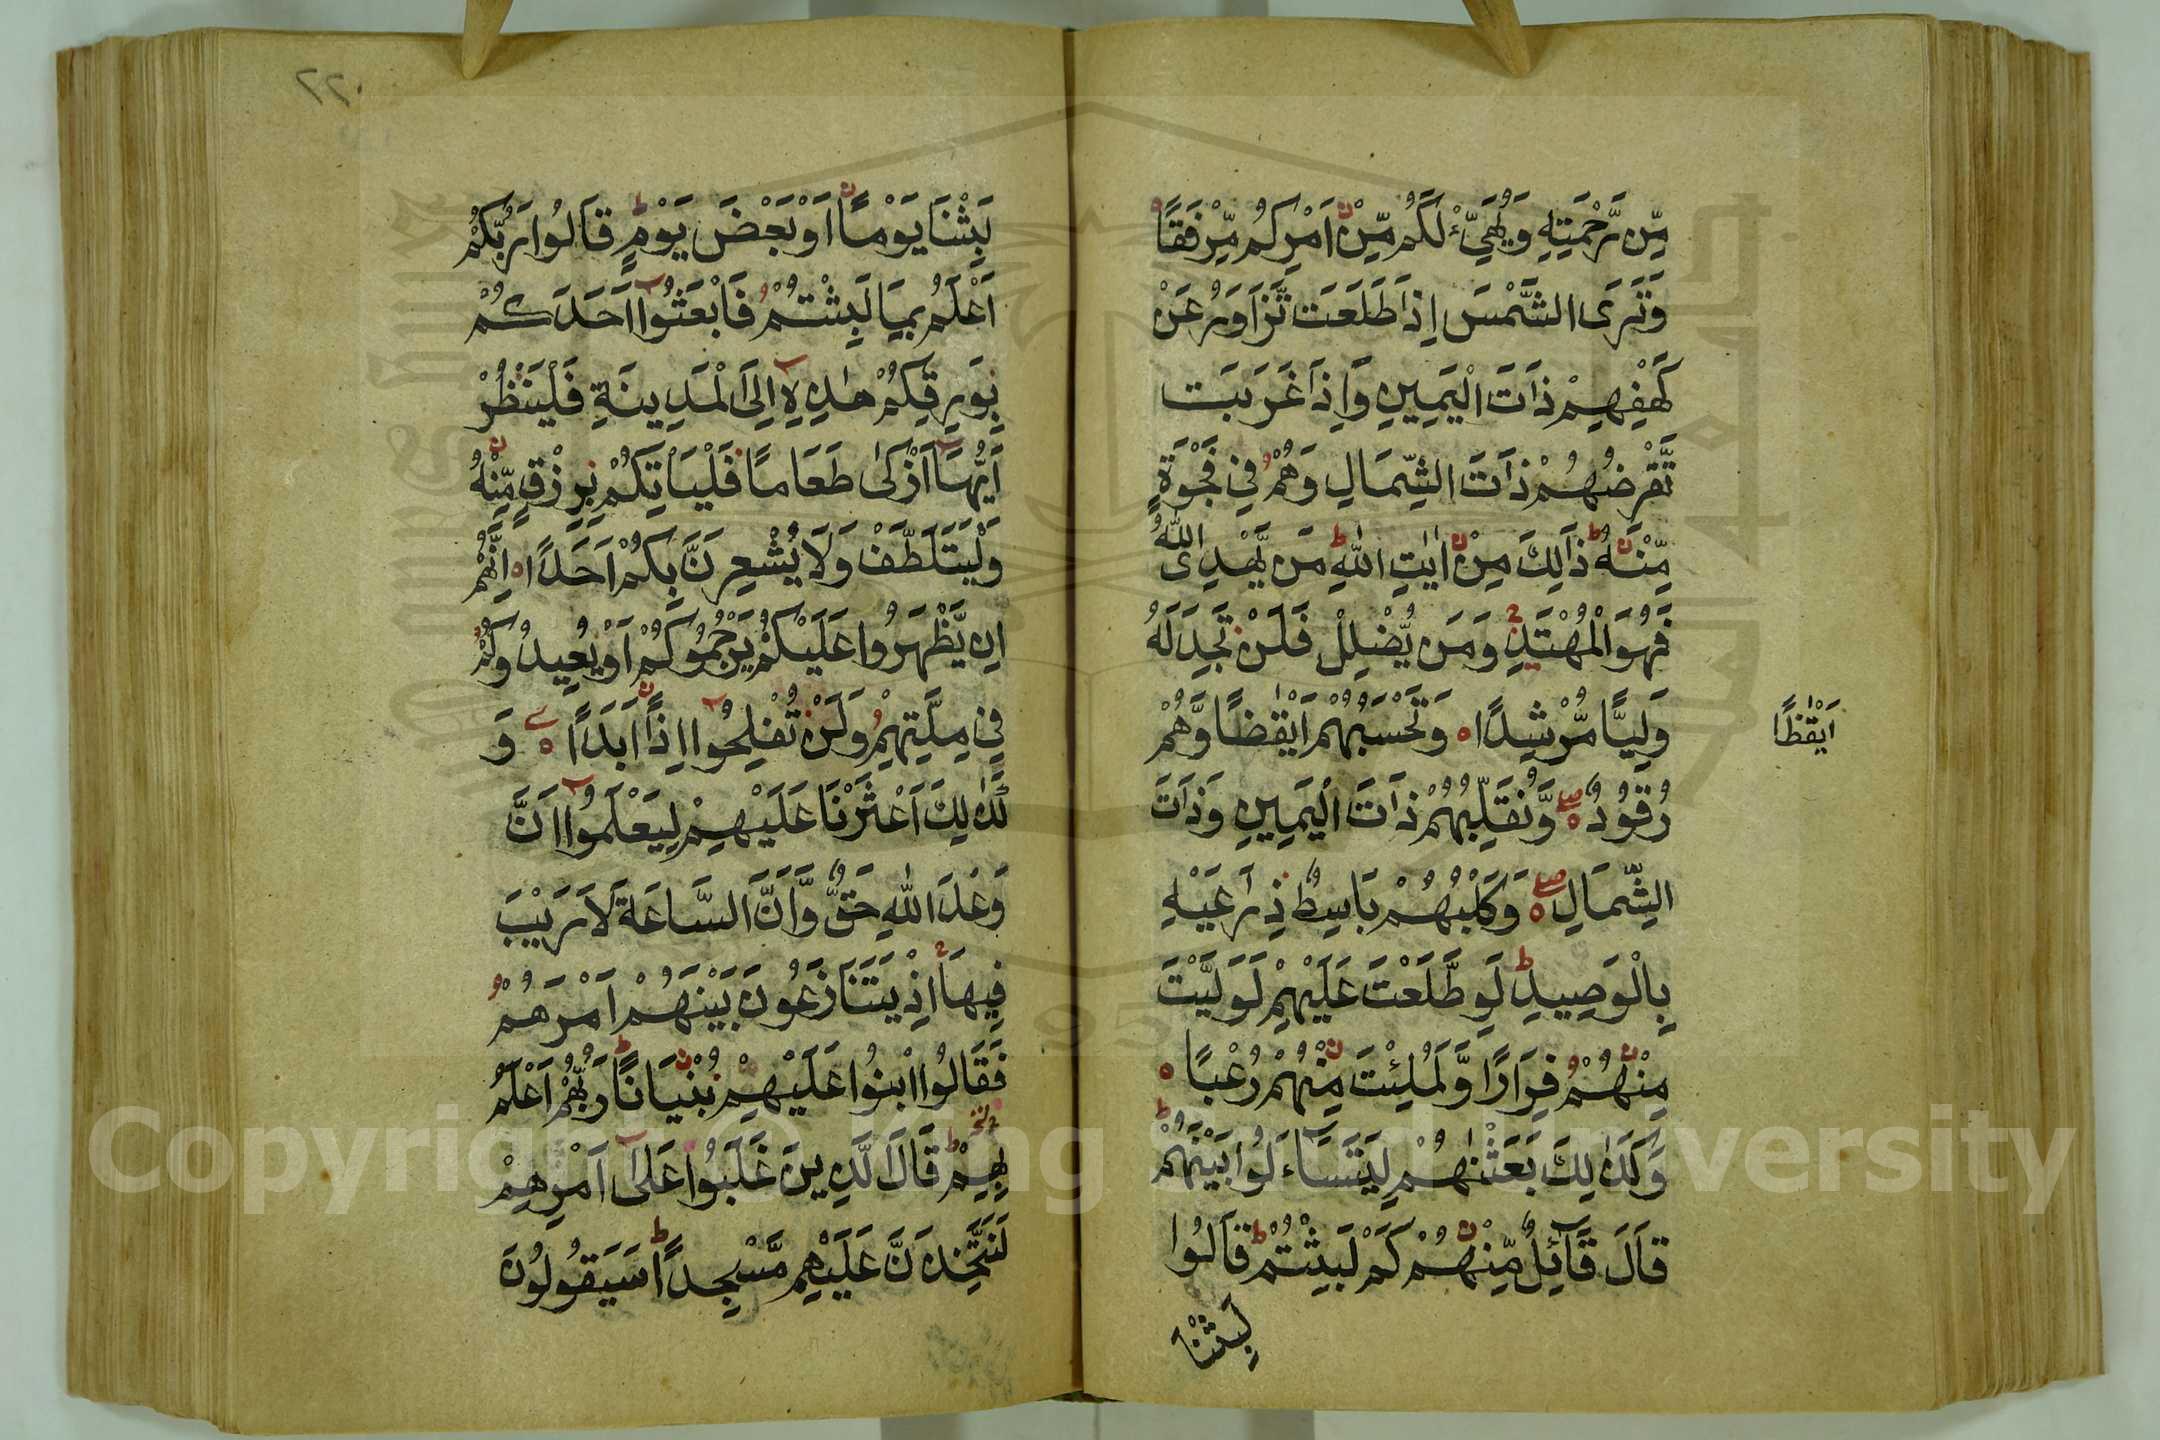 مِّن رَّحْمَتِهِ وَيُهَيِّءْ لَكُم مِّنْ اَمْرِكُم مِّرْفَقًا
وَتَرَى الشَّمْسَ اِذَا طَلَعَت تَّزَاوَرُ عَنْ
كَهْفِهِمْ ذَاتَ الْيَمِينِ وَاِذَا غَرَبَت
تَّقْرِضُهُمْ ذَاتَ الشِّمَالِ وَهُمْ فِي فَجْوَةٍ
مِّنْهُ ط ذَالِكَ مِنْ اٰيٰتِ اللّٰهِ ط مَن يَّهْدِى اللّٰهُ
فَهُوَ الْمُهْتَدِ وَمَن يُّضْلِلْ فَلَنْ تَجِدَ لَهُ
وَلِيًّا مُّرْشِدًا ه وَتَحْسَبُهُمْ اَيْقٰظًا وَّهُمْ
اَيْقٰظًا
رُقُوُدٌ صلے وَّنُقَلِّبُهُمْ ذَاتَ الْيَمِينِ وَذَاتَ
الشِّمَالِ صلے وَكَلْبُهُمْ بَاسِطٌ ذِرَعَيْهِ
بِالْوَصِيدِ ط لَوِ طَّلَعْتَ عَلَيْهِمْ لَوَلَّيْتَ
مِنْهُمْ فِرَارًا وَّلَمُلِئْتَ مِنْهُمْ رُعْبًا ه
وَكَذٰلِكَ بَعَثْنٰهُمْ لِيَتَسَآءَلُوا بَيْنَهُمْ ط
قَالَ قَآئِلٌ مِّنْهُمْ كَمْ لَبِثْتُمْ ط قَالُوا
لَبِثْنَا
٢٢٠
لَبِثْنَا يَوْمًا اَوْ بَعْضَ يَوْمٍ ط قَالُوا رَبُّكُمْ
اَعْلَمُ بِمَا لَبِثْتُمْ فَابْعَثُوا اَحَدَكُمْ
بِوَرِقِكُمْ هٰذِهِ اِلَى الْمَدِينَةِ فَلْيَنْظُرْ
اَيُّهَا اَزْكٰى طَعَامًا فَلْيَاْتِكُمْ بِرِزْقٍ مِّنْهُ
وَلْيَتَلَطَّفْ وَلَا يُشْعِرَنَّ بِكُمْ اَحَدًا ه اِنَّهُمْ
اِن يَّظْهَرُوا عَلَيْكُمْ يَرْجُمُوكُمْ اَوْ يُعِيدُوكُمْ
فِي مِلَّتِهِمْ وَلَنْ تُفْلِحُوا اِذًا اَبَدًا ه وَ
كَذٰلِكَ اَعْثَرْنَا عَلَيْهِمْ لِيَعْلَمُوا اَنَّ
وَعْدَ اللّٰهِ حَقٌّ وَّاَنَّ السَّاعَةَ لَا رَيْبَ
فِيهَا اِذْ يَتَنَازَعُونَ بَيْنَهُمْ اَمْرَهُمْ
فَقَالُوا ابْنُوا عَلَيْهِمْ بُنْيَانًا ط رَبُّهُمْ اَعْلَمُ
بِهِمْ ط قَالَ الَّذِينَ غَلَبُوا عَلَى اَمْرِهِمْ
لَنَتَّخِذَنَّ عَلَيْهِم مَّسْجِدًا ط سَيَقُولُونَ
Copyright © King Saud University